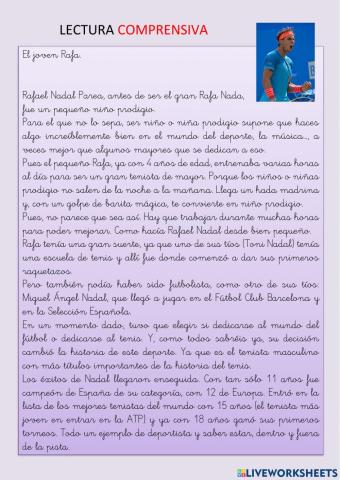 LECTURA COMPRENSIVA
El joven Rafa.
Rafael Nadal Parea, antes de ser el gran Rafa Nada,
fue un pequeño niño prodigio.
Para el que no lo sepa, ser niño o niña prodigio supone que haces
algo increíblemente bien en el mundo del deporte, la música..., a
veces mejor que algunos mayores que se dedican a eso.
Pues el pequeño Rafa, ya con 4 años de edad, entrenaba varias horas
al día para ser un gran tenista de mayor. Porque los niños o niñas
prodigio no salen de la noche a la mañana. Llega un hada madrina
y, con un golpe de barita mágica, te convierte en niño prodigio.
Pues, no parece que sea así. Hay que trabajar durante muchas horas
para poder mejorar. Como hacía Rafael Nadal desde bien pequeño.
Rafa tenía una gran suerte, ya que uno de sus tíos (Toni Nadal) tenía
una escuela de tenis y allí fue donde comenzó a dar sus primeros
raquetazos.
Pero también podía haber sido futbolista, como otro de sus tíos:
Miguel Ángel Nadal, que llegó a jugar en el Fútbol Club Barcelona y
en la Selección Española.
En un momento dado, tuvo que elegir si dedicarse al mundo del
fútbol o dedicarse al tenis. Y, como todos sabréis ya, su decisión
cambió la historia de este deporte. Ya que es el tenista masculino
con más títulos importantes de la historia del tenis.
Los éxitos de Nadal llegaron enseguida. Con tan sólo 11 años fue
campeón de España de su categoría, con 12 de Europa. Entró en la
lista de los mejores tenistas del mundo con 15 años (el tenista más
joven en entrar en la ATP) y ya con 18 años ganó sus primeros
torneos. Todo un ejemplo de deportista y saber estar, dentro y fuera
de la pista.
LIVEWORKSHEETS